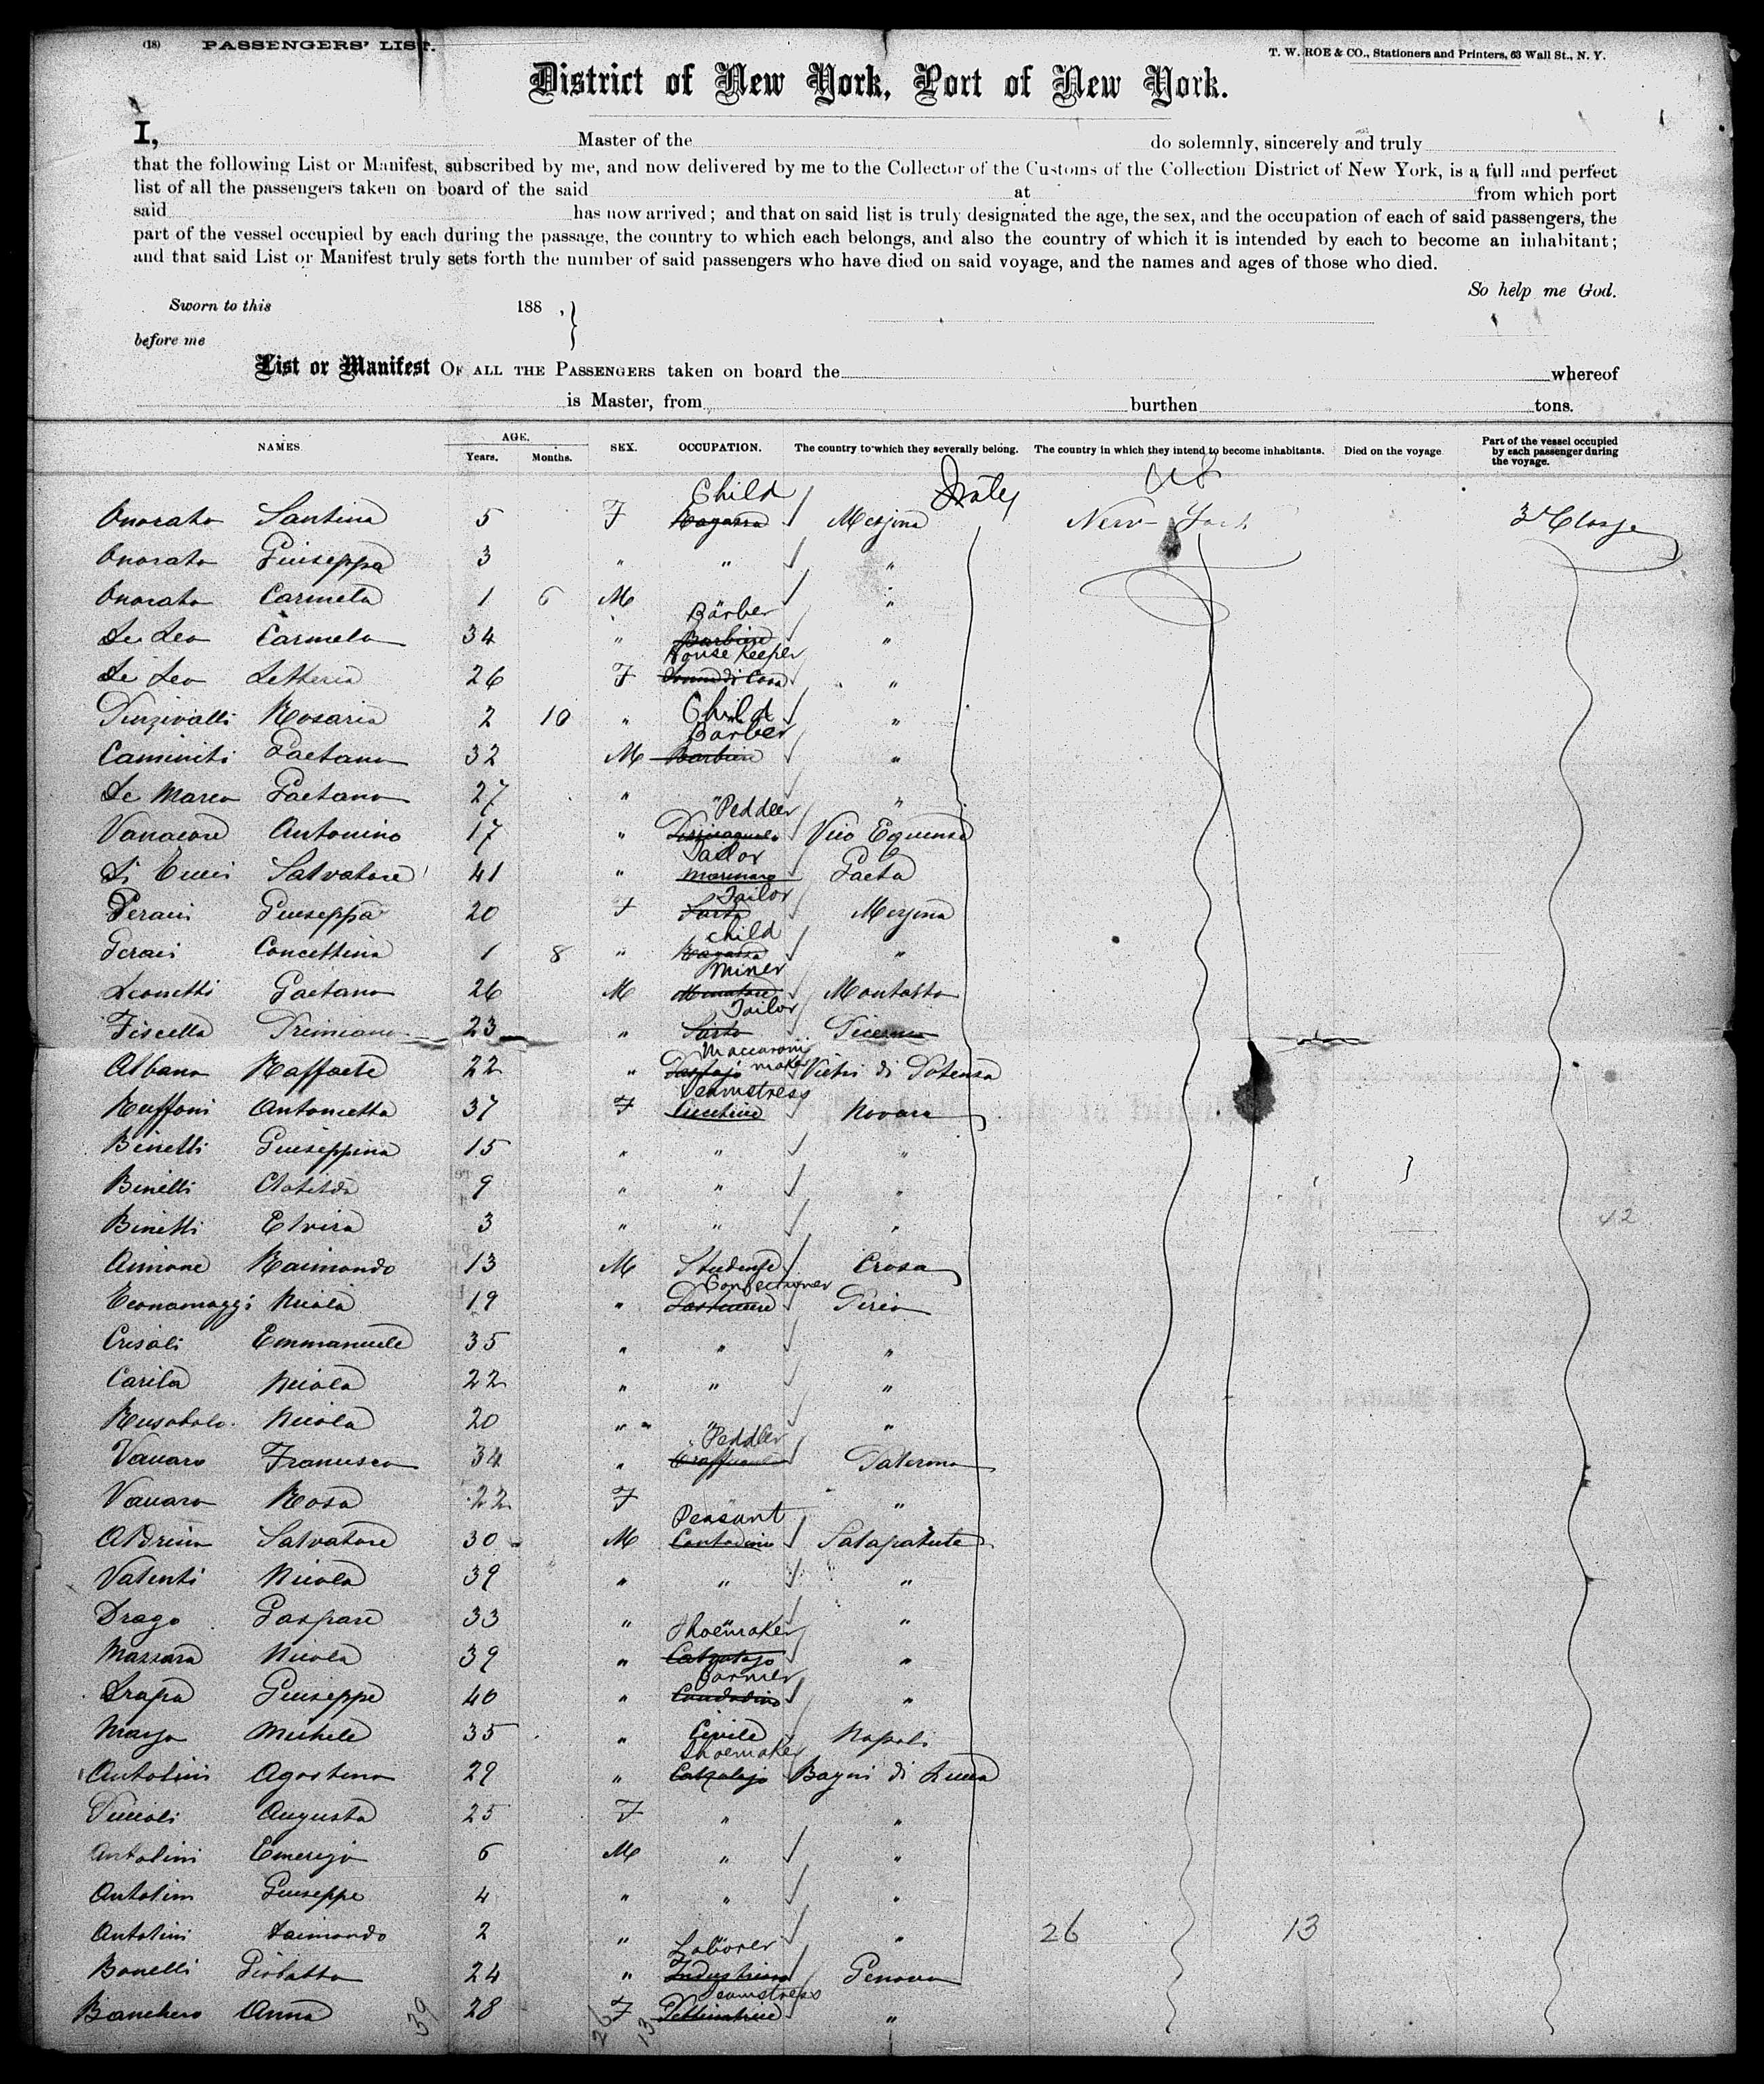 (18) PASSENGERS' LIST.
T. W. ROE & CO., Stationers and Printers, 63 Wall St., N. Y.
District of New York, Port of New York.
I, Master of the do solemnly, sincerely and truly
that the following List or Manifest, subscribed by me, and now delivered by me to the Collector of the Customs of the Collection District of New York, is a full and perfect
list of all the passengers taken on board of the said at from which port
said has now arrived; and that on said list is truly designated the age, the sex, and the occupation of each of said passengers, the
part of the vessel occupied by each during the passage, the country to which each belongs, and also the country of which it is intended by each to become an inhabitant;
and that said List or Manifest truly sets forth the number of said passengers who have died on said voyage, and the names and ages of those who died.
So help me God.
Sworn to this 188 , }
before me
List or Manifest OF ALL THE PASSENGERS taken on board the whereof
is Master, from burthen tons.
NAMES. AGE. Years. Months. SEX. OCCUPATION. The country to which they severally belong. The country in which they intend to become inhabitants. Died on the voyage Part of the vessel occupied by each passenger during the voyage.
Child Italy US
Onorato Santina 5 F Ragazza Messina New York 3d Classe
Onorato Giuseppa 3 " " "
Onorato Carmelo 1 6 M " "
Barber
De Leo Carmelo 34 " Barbiere "
House Keeper
De Leo Letteria 26 F Donna di Casa "
Rosaria 2 10 " Child "
Barber
Caminiti Gaetano 32 M Barbiere "
De Marco Gaetano 27 " " "
Peddler
Vanacore Antonino 17 " Vico Equense
Tailor
Salvatore 41 " Marinaro Gaeta
Tailor
Geraci Giuseppa 20 F Sarta Messina
Child
Geraci Concettina 1 8 " Ragazza "
Miner
Leonetti Gaetano 26 M Minatore Montalto
Tailor
Fiscella 23 " Sarto
Maccaroni maker
Albano Raffaele 22 " Pastajo Vietri di Potenza
Seamstress
Ruffoni Antonietta 37 F Cucitrice Novara
Binelli Giuseppina 15 " " "
Binelli Clotilde 9 " " "
Binelli Elvira 3 " " "
42
Aimone Raimondo 13 M Studente Crosa
Confectioner
Economaggi Nicola 19 "
Crisoli Emmanuele 35 " " "
Nicola 22 " " "
Nicola 20 " " "
Peddler
Vanaro Francesco 34 "
Vanaro Rosa 22 F " "
Peasant
Salvatore 30 M Contadino Salaparuta
Valenti Nicola 39 " " "
Drago Gaspare 33 " " "
Shoemaker
Massara Nicola 39 " Calzolajo "
Farmer
Giuseppe 40 " Contadino "
Michele 35 " Civile Napoli
Shoemaker
Antolini Agostino 29 " Calzolajo Bagni di Lucca
Augusta 25 F " "
Antolini Emerigo 6 M " "
Antolini Giuseppe 4 " " "
Antolini Raimondo 2 " " " 26 13
Laborer
Bonelli Giobatta 24 " Genova
Seamstress
Banchero Anna 39 28 26 F 13 "